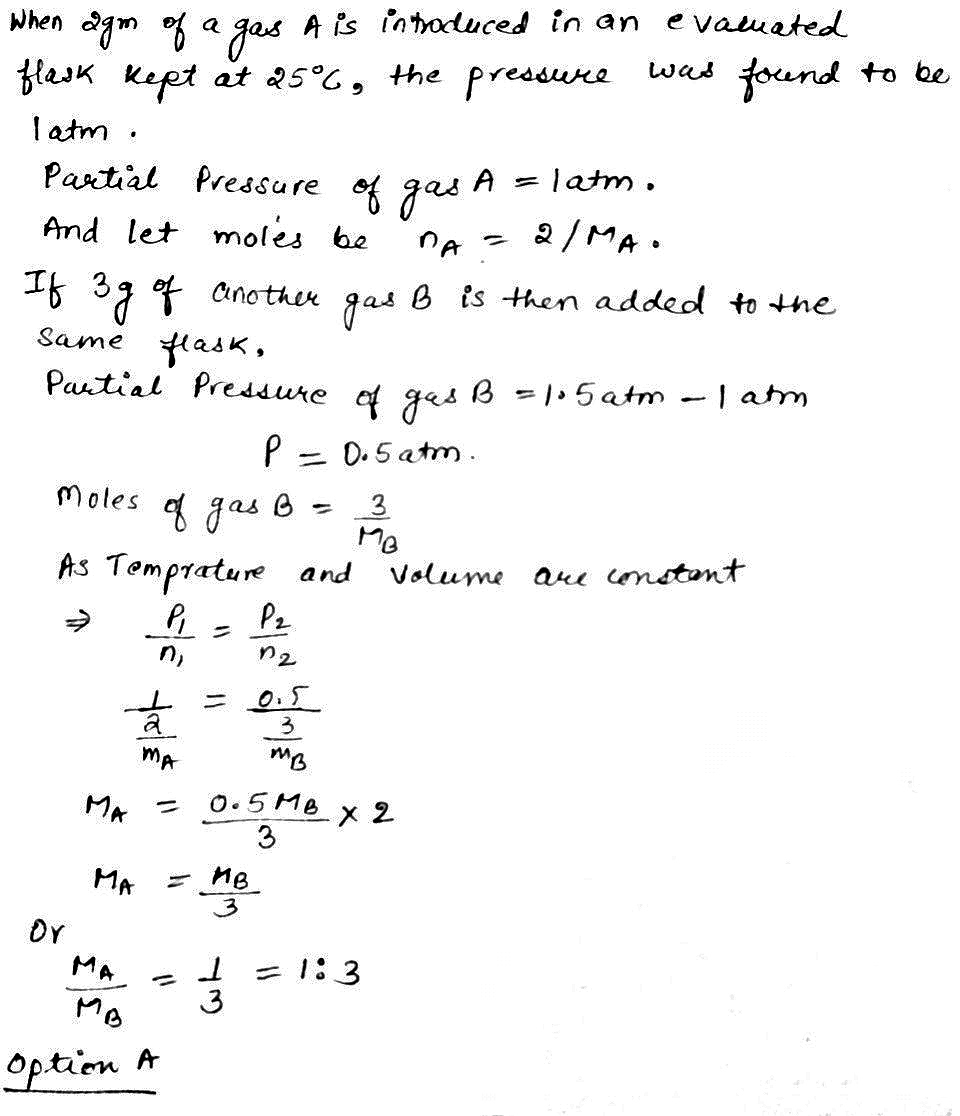 When 2gm of a gas A is introduced in an evacuated
flask kept at 25°C, the pressure was found to be
1 atm .
Partial Pressure of gas A = 1 atm .
And let moles be nA = 2/MA .
If 3g of another gas B is then added to the
Same flask,
Partial Pressure of gas B = 1.5 atm - 1 atm
P = 0.5 atm.
Moles of gas B = 3/MB
As Temprature and Volume are constant
⇒ P1/n1 = P2/n2
1/(2/mA) = 0.5/(3/mB)
MA = 0.5 MB/3 × 2
MA = MB/3
Or
MA/MB = 1/3 = 1:3
Option A